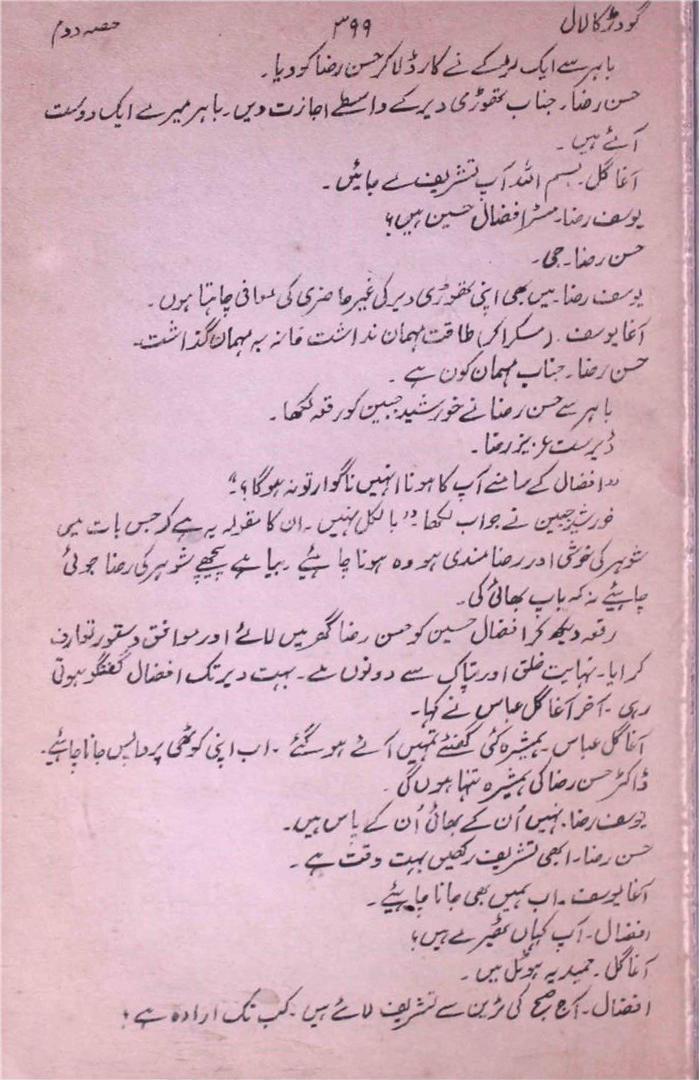 گودڑ کا لال ۳۹۹ حصہ دوم
باہر سے ایک لڑکے نے کارڈ لا کر حسن رضا کو دیا۔
حسن رضا۔ جناب تھوڑی دیر کے واسطے اجازت دیں۔ باہر میرے ایک دوست
آئے ہیں ۔
آغا گل۔ بسم اللہ آپ تشریف لے جائیں ۔
یوسف رضا۔ مسٹر افضال حسین ہیں؟
حسن رضا۔ جی۔
یوسف رضا۔ میں بھی اپنی تھوڑی دیر کی غیر حاضری کی معافی چاہتا ہوں۔
آغا یوسف۔ (مسکرا کر) طاقت مہمان نداشت خانہ بہ مہمان گذاشت۔
حسن رضا۔ جناب مہمان کون ہے ۔
باہر سے حسن رضا نے خورشید جبین کو رقعہ لکھا۔
ڈیرسٹ عزیز رضا۔
"افضال کے سامنے آپ کا ہونا انہیں ناگوار تو نہ ہوگا؟"
خورشید جبین نے جواب لکھا "بالکل نہیں ۔ ان کا مقولہ یہ ہے کہ جس بات میں
شوہر کی خوشی اور رضامندی ہو وہ ہونا چاہئیے ۔ بیاہے پیچھے شوہر کی رضا جوئی
چاہئیے نہ کہ باپ بھائی کی۔
رقعہ دیکھ کر افضال حسین کو حسن رضا گھر میں لائے اور موافق دستور تعارف
کرایا۔ نہایت خلق اور تپاک سے دونوں ملے۔ بہت دیر تک افضال گفتگو ہوتی
رہی ۔ آخر آغا گل عباس نے کہا۔
آغا گل عباس۔ ہمشیرہ کئی گھنٹے تمہیں آئے ہو گئے ۔ اب اپنی کوٹھی پر واپس جانا چاہئیے۔
ڈاکٹر حسن رضا کی ہمشیرہ تنہا ہوں گی ۔
یوسف رضا۔ نہیں اُن کے بھائی اُن کے پاس ہیں۔
حسن رضا۔ ابھی تشریف رکھیں بہت وقت ہے ۔
آغا یوسف ۔ اب ہمیں بھی جانا چاہئیے ۔
افضال۔ آپ کہاں ٹھیرے ہیں؟
آغا گل ۔ حمیدیہ ہوٹل میں ۔
افضال۔ آج صبح کی ٹرین سے تشریف لائے ہیں ۔ کب تک ارادہ ہے ؟